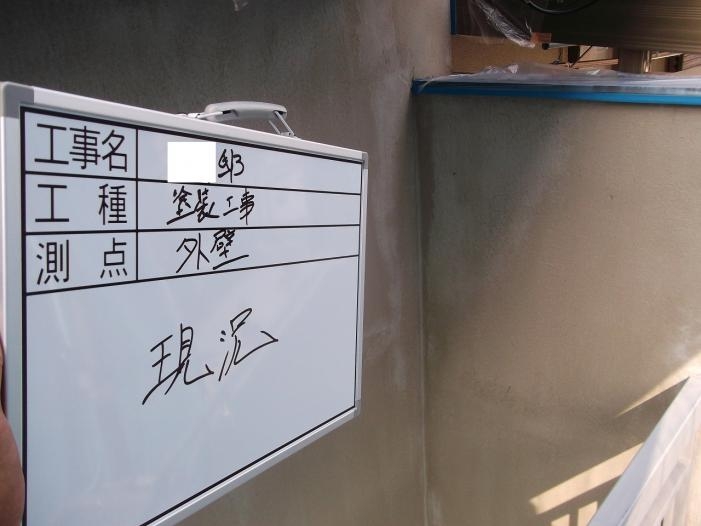 工事名 邸
工種 塗装工事
測点 外壁
現況